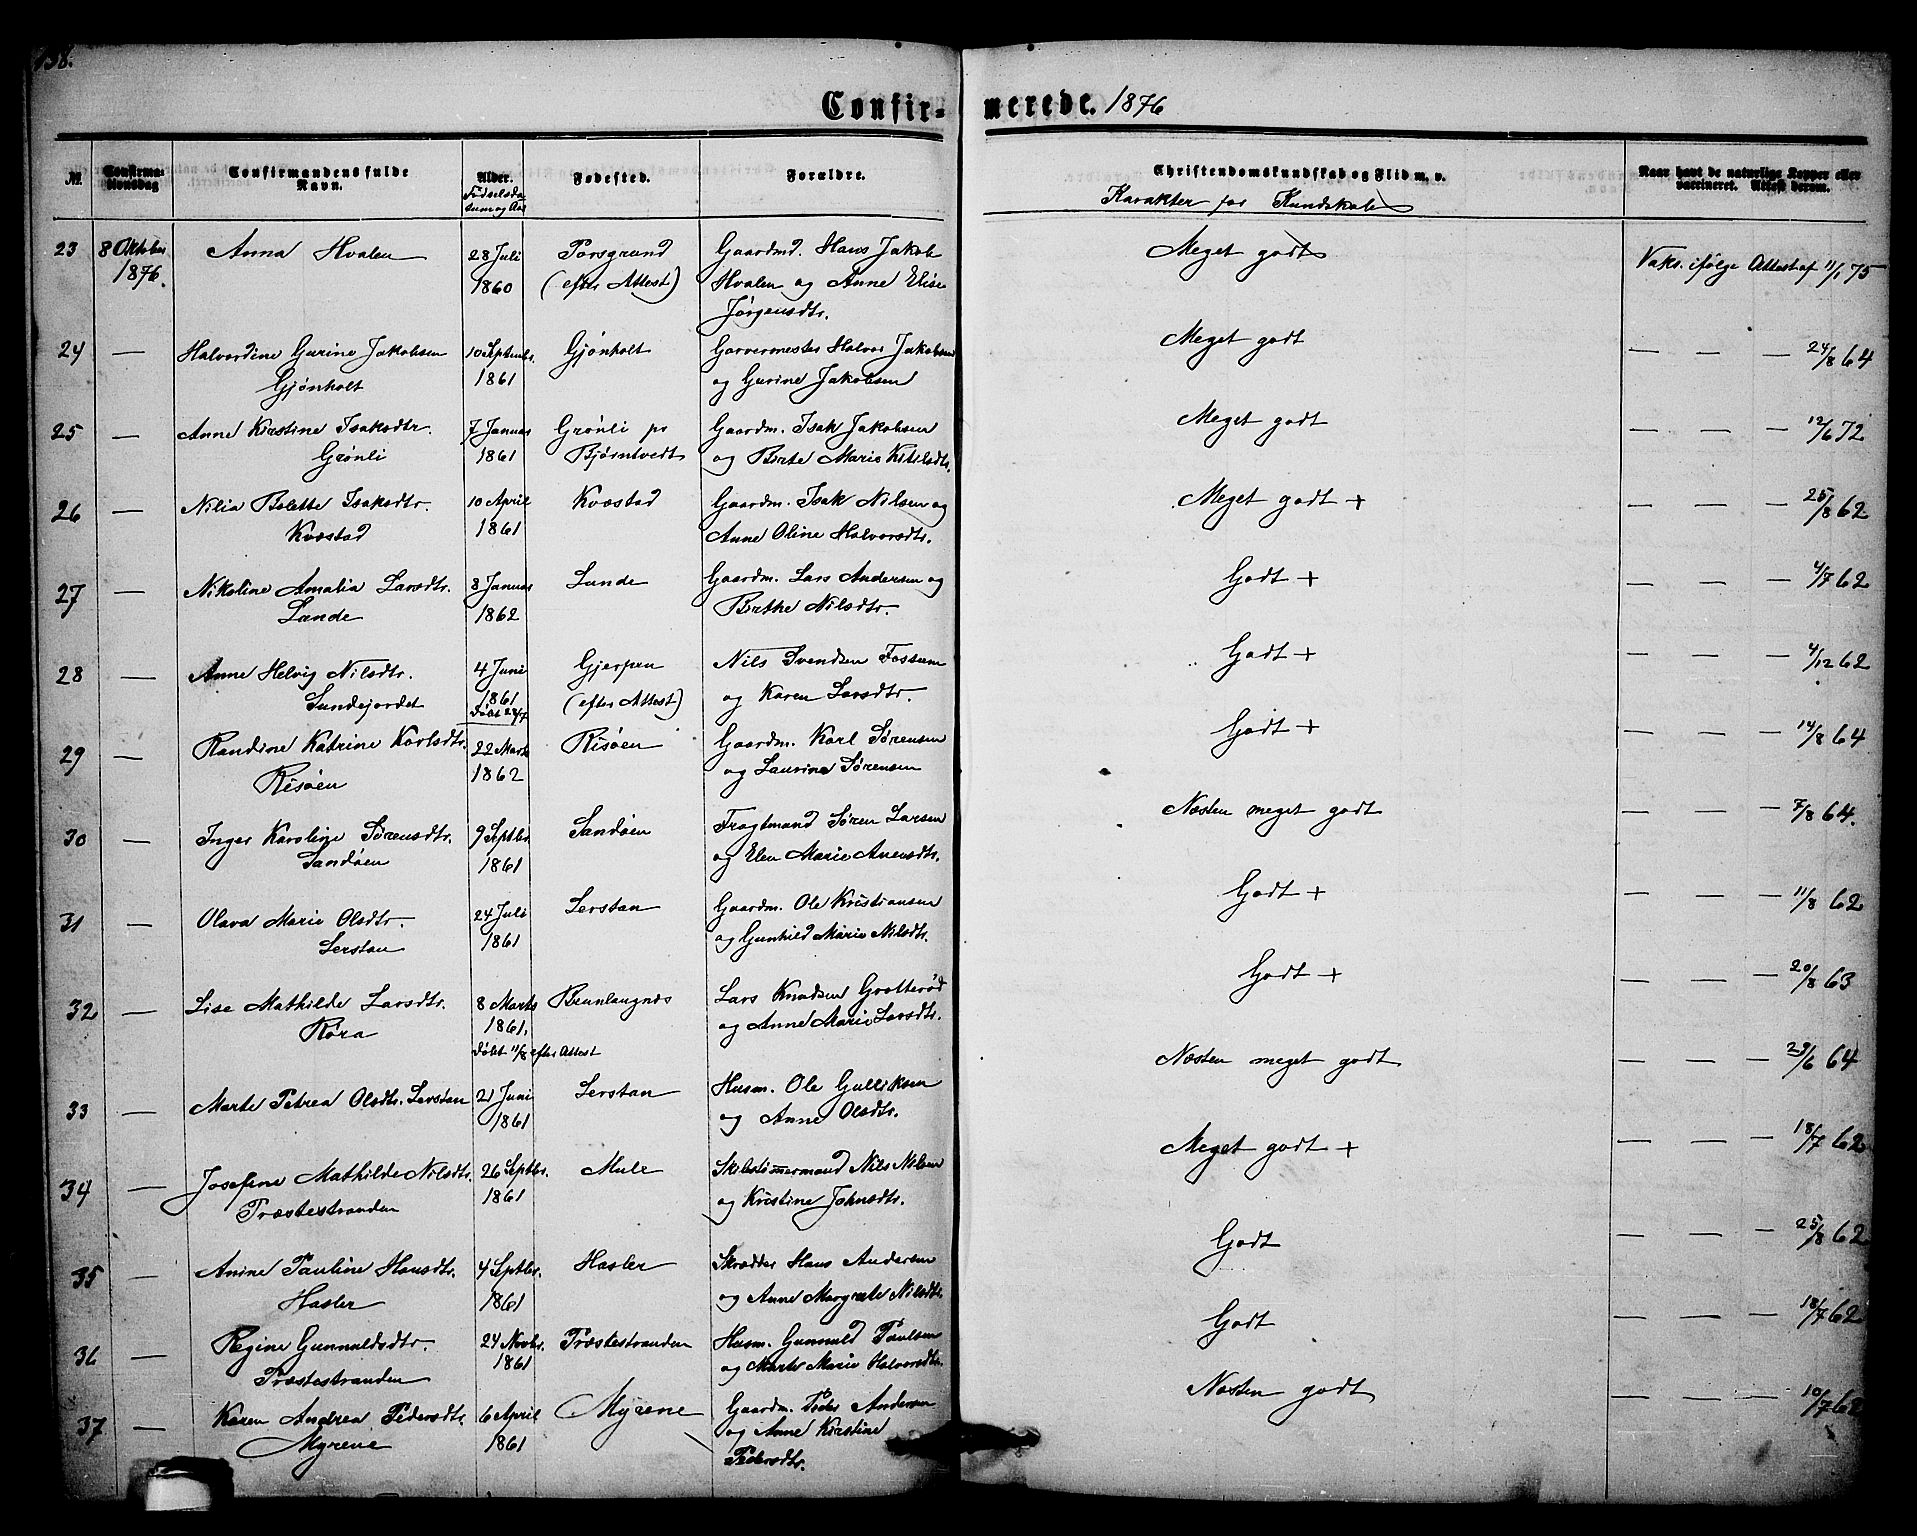 138.
Confirmerede. 1876
№ Confirmationsdag Confirmandens fulde Navn. Alder. Fødselsdatum og Aar Fødested. Forældre. Christendomskundskab og Flid m. v. Karakter for Kundskab Naar havt de naturlige Kopper eller vaccineret. Attest derom.
23 8 Oktober Anna Hvalen 28 Juli Porsgrund Gaardmd. Hans Jakob Meget godt Vaks. ifølge Attest af 11/1 75
1876. 1860 (efter Attest) Hvalen og Anne Elise
Jørgensdtr.
24 — Halvordine Gurine Jakobsen 10 Septembr. Gjønholt Garvermester Halvor Jakobsen Meget godt — — — 24/8 64
Gjønholt 1861 og Gurine Jakobsen
25 — Anne Kirstine Isaksdtr. 7 Januar Grønli pr Gaardm. Isak Jakobsen Meget godt — — — 12/6 72
Grønli 1861 Bjørntvedt og Birte Marie Kitilsdtr.
26 — Nilia Bolette Isaksdtr. 10 April Kvæstad Gaardm. Isak Nilsen og Meget godt + — — — 25/8 62
Kvæstad 1861 Anne Oline Halvorsdtr.
27 — Nikoline Amalia Larsdtr. 8 Januar Lunde Gaardm. Lars Andersen og Godt + — — — 4/7 62
Lunde 1862 Birthe Nilsdtr.
28 — Anne Helvig Nilsdtr. 4 Juni Gjerpen Nils Svendsen Fossum Godt + — — — 4/12 62
Lundejordet 1861 (efter Attest) og Karen Larsdtr.
Døbt 28/7
29 — Randine Katrine Karlsdtr. 22 Marts Risøen Gaardm. Karl Sørensen Godt + — — — 14/8 64
Risøen 1862 og Laurine Sørensen
30 — Inger Karoline Sørensdtr. 9 Septbr. Sandøen Fragtmand Søren Larsen Næsten meget godt — — — 7/8 64.
Sandøen 1861 og Elen Marie Anensdtr.
31 — Olava Marie Olsdtr. 24 Juli Serstan Gaardm. Ole Kristiansen Godt + — — — 11/8 62
Serstan 1861 og Gunhild Marie Nilsdtr.
32 — Lise Mathilde Larsdtr. 8 Marts Brunlaugnæs Lars Knudsen Grotterød Godt + — — — 20/8 63
Røra 1861. og Anne Marie Larsdtr.
Døbt 11/8 efter Attest
33 — Marte Petrea Olsdtr. Serstan 21 Juni Serstan Husm. Ole Gulliksen Næsten meget godt — — — 29/6 64
1861 og Anne Olsdtr.
34 — Josefine Mathilde Nilsdtr. 26 Septbr. Mule Skibstømmermand Nils Nilsen Meget godt + — — — 18/7 62
Træstestranden 1861 og Kristine Johnsdtr.
35 — Anine Pauline Hansdtr. 4 Septbr. Hasler Skrædder Hans Andersen Godt — — — 25/8 62
Hasler 1861 og Anne Margrete Nilsdtr.
36 — Regine Gunnuldsdtr. 24 Novbr. Træstestranden Husm. Gunnuld Paulsen Godt — — — 18/7 62
Træstestranden 1861 og Marte Marie Halvorsdtr.
37 — Karen Andrea Pedersdtr. 6 April Myrene Gaardm. Peder Andersen Næsten godt — — — 10/7 62
Myrene 1861 og Anne Kirstine
Pedersdtr.